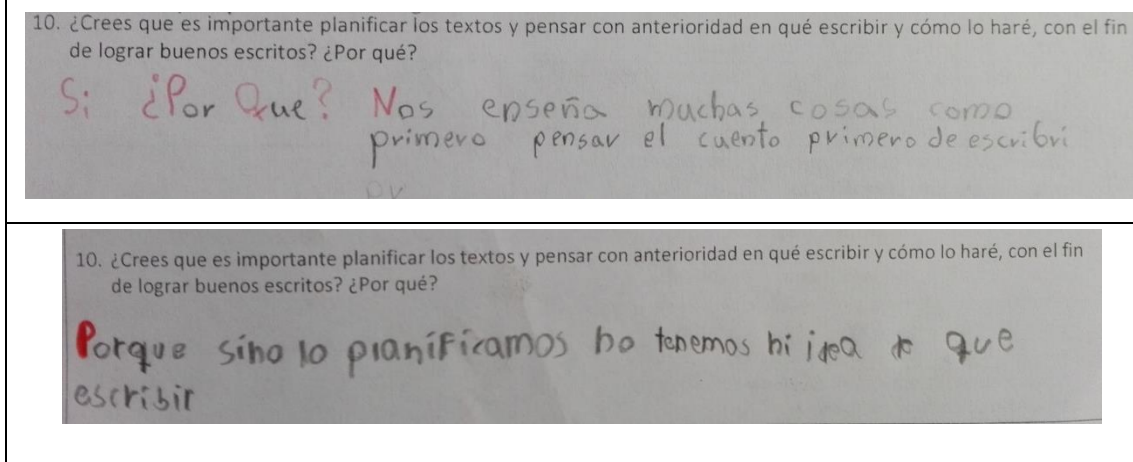 10. ¿Crees que es importante planificar los textos y pensar con anterioridad en qué escribir y cómo lo haré, con el fin
de lograr buenos escritos? ¿Por qué?
Si ¿Por Que? Nos enseña muchas cosas como
primero pensar el cuento primero de escribri
10. ¿Crees que es importante planificar los textos y pensar con anterioridad en qué escribir y cómo lo haré, con el fin
de lograr buenos escritos? ¿Por qué?
Porque sino lo planificamos no tenemos ni idea de que
escribir